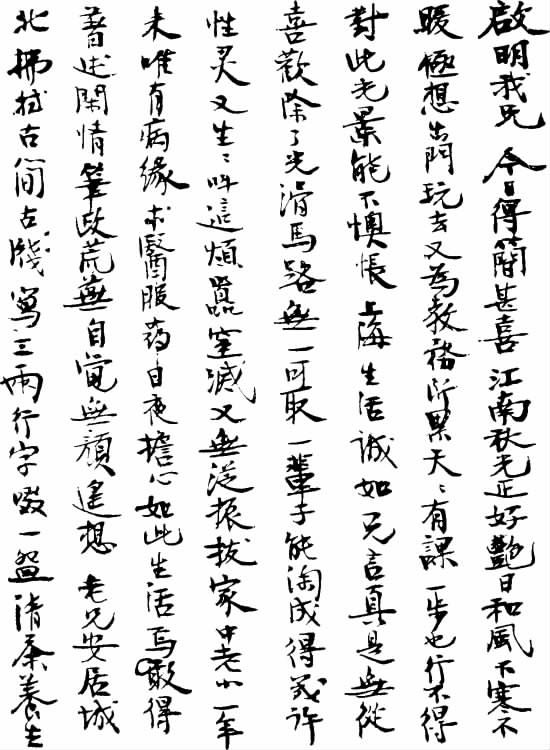 啟明我兄 今日得簡甚喜 江南秋光正好艷日和風不寒不
暖極想出門玩去又為教務所累天天有課 一步也行不得
對此光景能不懊悵 上海生活誠如 兄言真是無從
喜歡除了光滑馬路無一可取 一輩子能淘成得幾許
性灵又生生叫這煩囂窒滅又無從振拔家中老小一年
來唯有病緣求醫服药日夜擔心如此生活焉敢得
著述閑情筆政荒蕪自覺無顏遙想 老兄安居城
北拂拭古簡古牋寫三兩行字啜一盌清茶養生